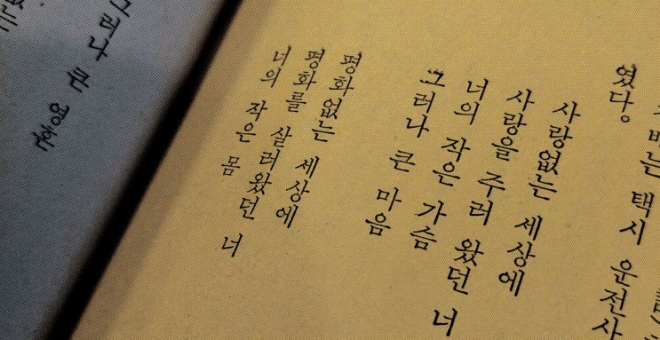 는 택시 운전사
였다.
사랑없는 세상에
사랑을 주러 왔던 너
너의 작은 가슴
그러나 큰 마음
평화없는 세상에
평화를 살러왔던 너
너의 작은 몸
그러나 큰 영혼